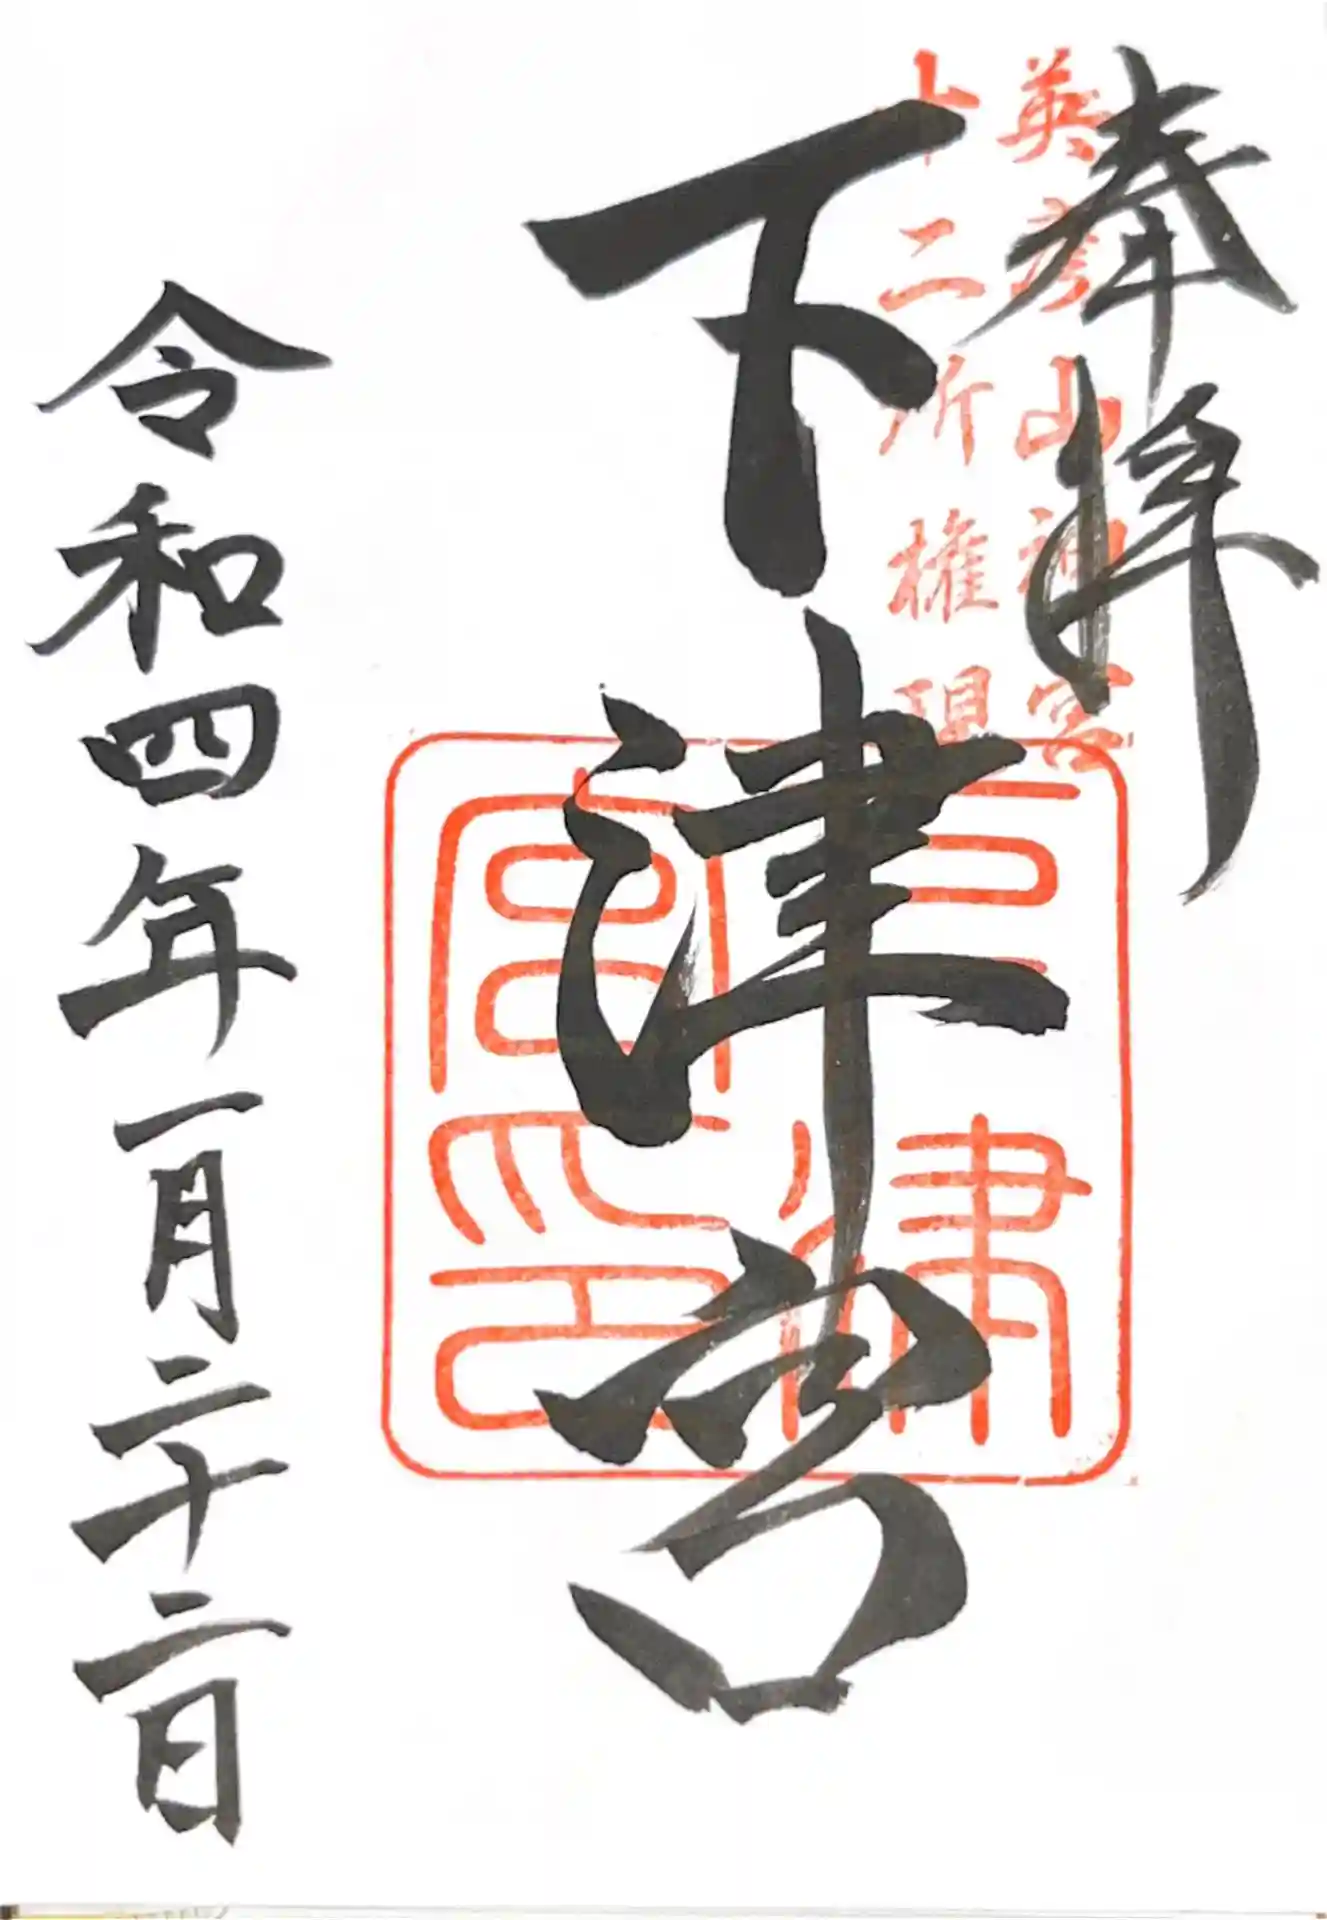 奉拝
英彦山神宮
十二所權現
下津宮
下津宮印
令和四年一月二十二日